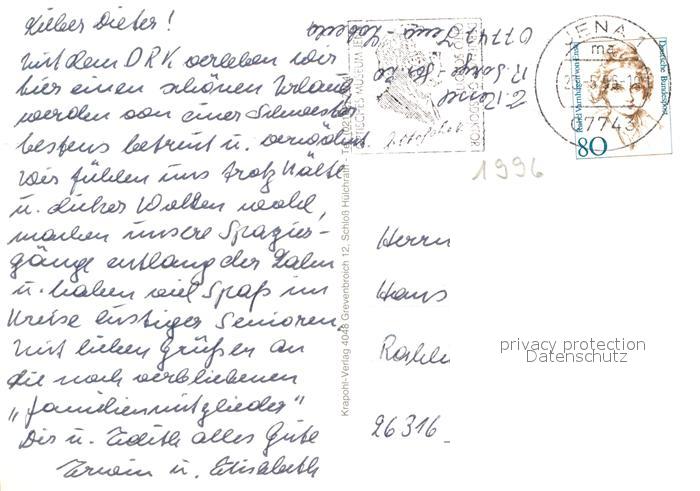 Lieber Dieter!
Mit dem DRK verleben wir
hier einen schönen Urlaub
werden von einer Schwester
bestens betreut u. verwöhnt.
Wir fühlen uns trotz Kälte
u. dicker Wolken wohl,
machen unsere Spazier-
gänge entlang der Lahn
u. haben viel Spaß im
Kreise lustiger Senioren.
Mit lieben Grüßen an
die noch verbliebenen
„Familienmitglieder"
Dir u. Edith alles Gute
Erwin u. Elisabeth
07747 Jena-Lobeda
Krapohl-Verlag 4048 Grevenbroich 12, Schloß Hülchrath
OPTISCHES MUSEUM JENA
JENA 1
ma
07743
Deutsche Bundespost
Rahel Varnhagen von Ense
80
1996
Herrn
Hans
26316
privacy protection
Datenschutz